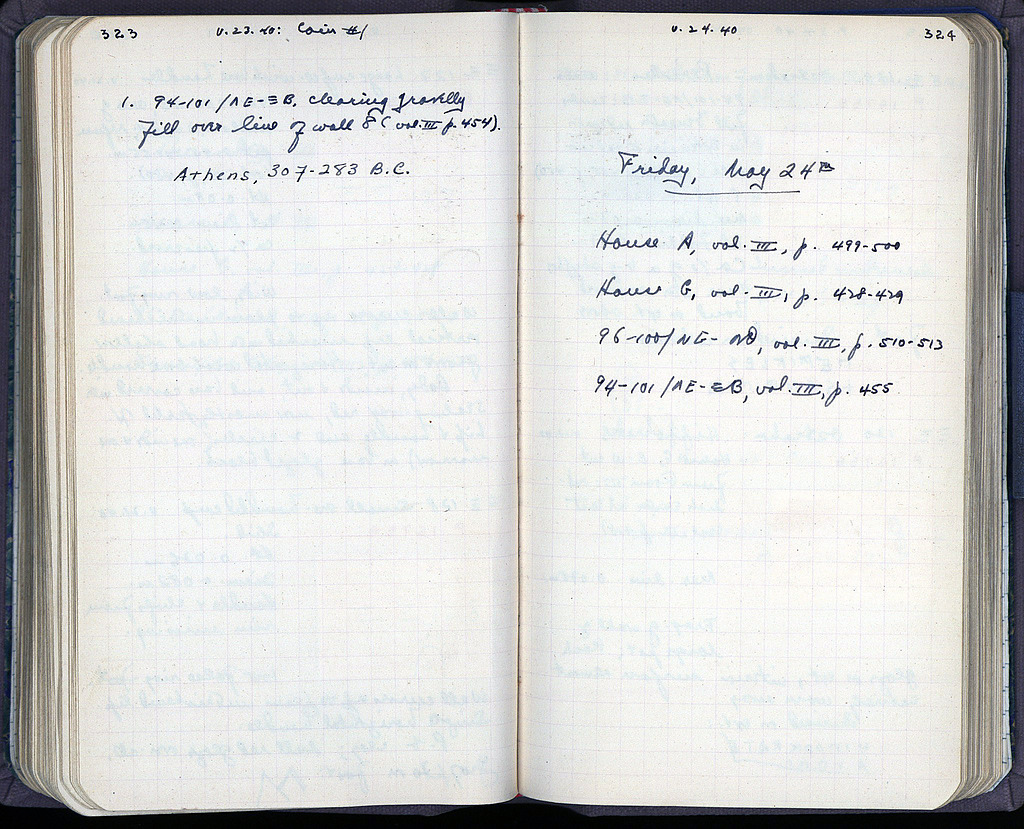 323
V.23.40: Coin #1
1. 94-101/ΛE-ΞB, clearing gravelly
fill over line of wall 8 (vol. III p. 454).
Athens, 307-283 B.C.
V.24.40
324
Friday, May 24th
House A, vol. III, p. 499-500
House G, vol. III, p. 428-429
96-100/NG- , vol. III, p. 510-513
94-101/ΛE-ΞB, vol. III, p. 455